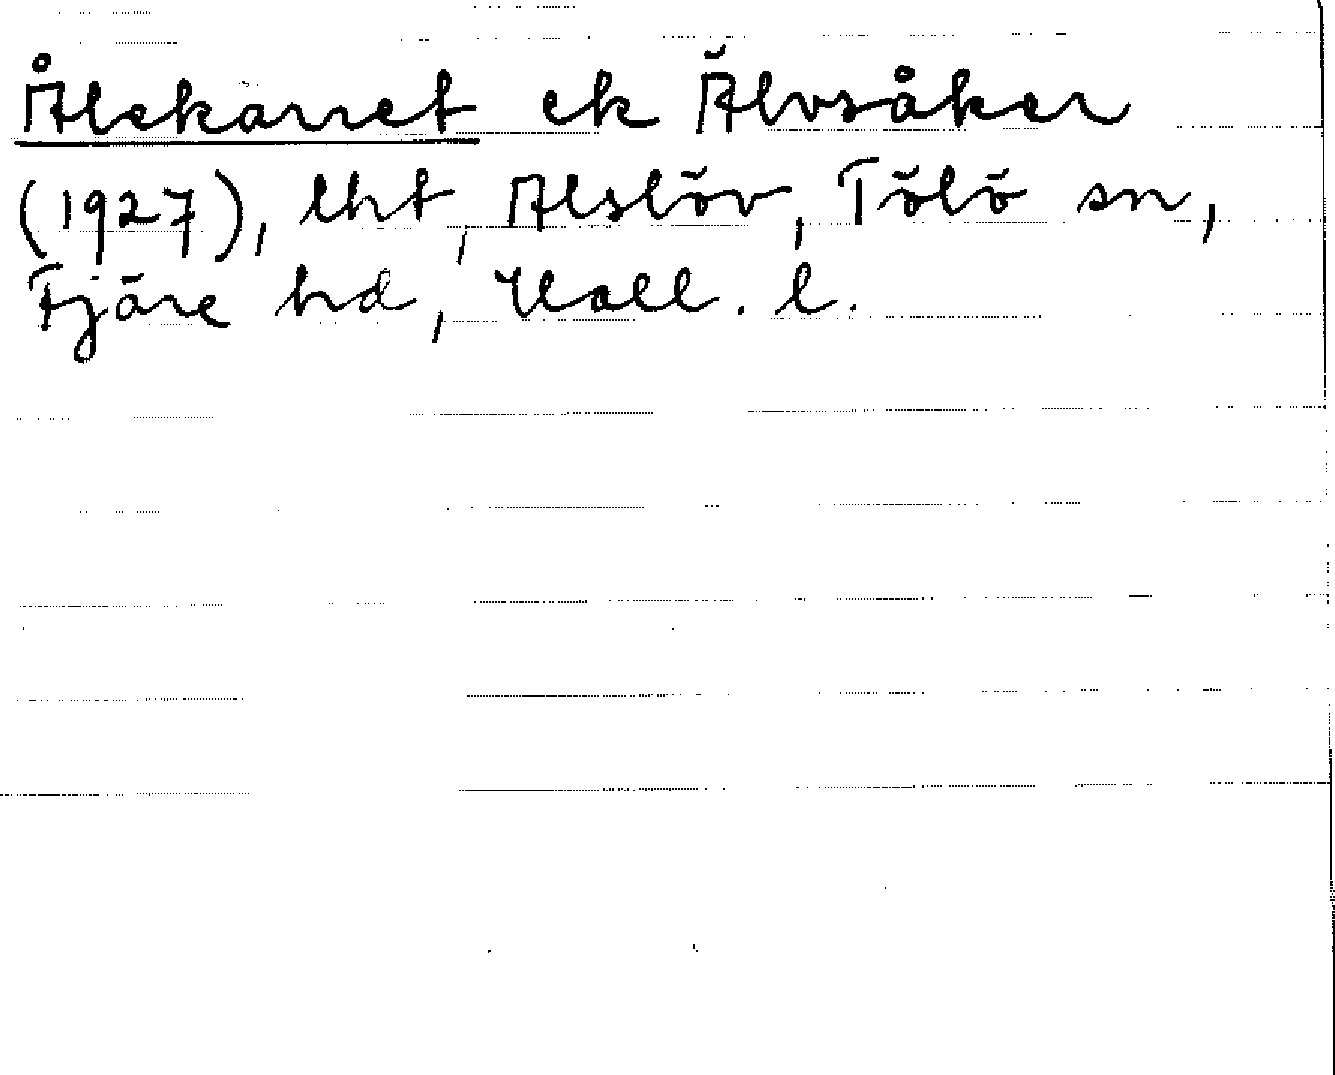 Ålekärret ek Älvsåker
(1927), lht, Alslöv, Tölö sn,
Fjäre hd, Hall. l.